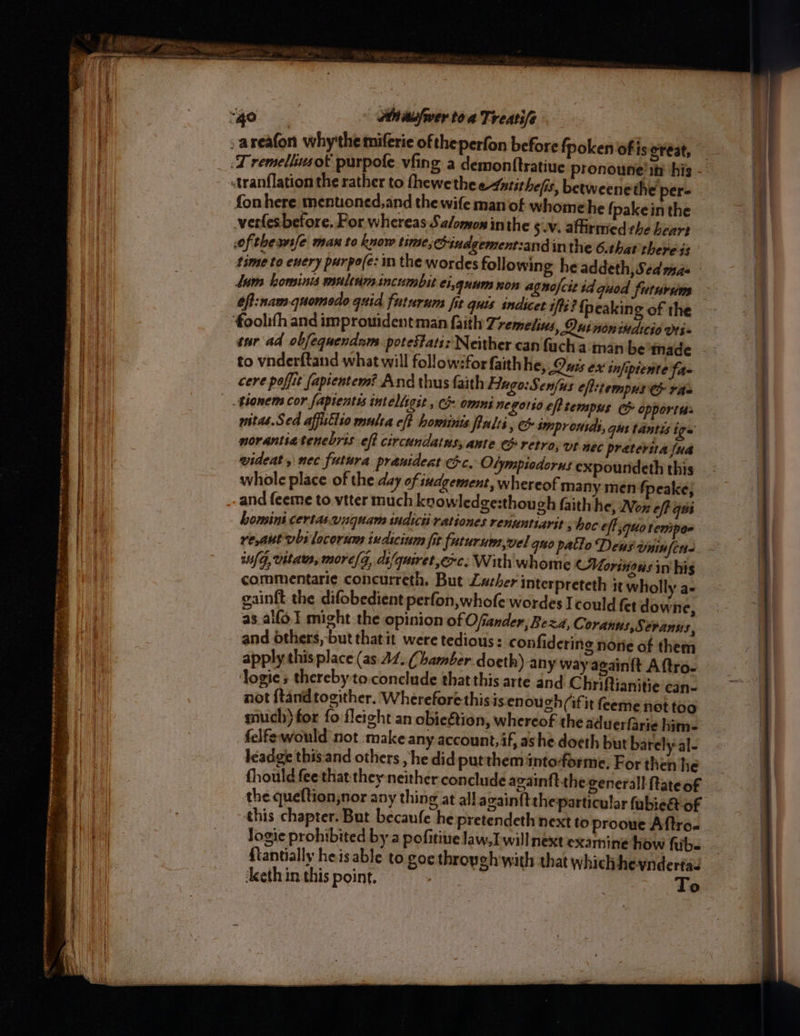 40 An answer to a Treatise
a reason why the miserie of the person before spoken of is great,
Tremellius of purpose vsing a demonstratiue pronoune in his
translation the rather to shewe the Antithesis, betweene the per-
son here mentioned, and the wise man of whome he spake in the
verses before. For whereas Salomon in the 5.v. affirmed the heart
of the wise man to know time, & iudgement: and in the 6. that there is
time to euery purpose: in the wordes following he addeth, Sed ma-
lum hominis multum incumbit ei, quum non agnoscit id quod futurum
est: nam quomodo quid futurum sit quis indicet isti? speaking of the
foolish and improuident man saith Tremelius, Qui non iudicio vti-
tur ad obsequendum potestati: Neither can such a man be made
to vnderstand what will follow: for saith he, Quis ex insipiente fa-
cere possit sapientem? And thus saith Hugo: Sensus est: tempus & ra-
tionem cor sapientis intelligit, & omni negotio est tempus & opportu-
nitas. Sed afflictio multa est hominis stulti, & improuidi, qui tantis ig-
norantiæ tenebris est circundatus, ante & retro, vt nec præterita sua
videat, nec futura præuideat &c. Olympiodorus expoundeth this
whole place of the day of iudgement, whereof many men speake,
and seeme to vtter much knowledge: though saith he, Non est qui
homini certas vnquam iudicii rationes renuntiarit, hoc est, quo tempo-
re, aut vbi locorum iudicium sit futurum, vel quo pacto Deus vniuscu-
iusq, vitam, moresq, disquiret, &c. With whome Morinous in his
commentarie concurreth. But Luther interpreteth it wholly a-
gainst the disobedient person, whose wordes I could set downe,
as also I might the opinion of Osiander, Beza, Coranus, Seranus,
and others, but that it were tedious: considering none of them
apply this place (as M. Chamber doeth) any way against Astro-
logie, thereby to conclude that this arte and Christianitie can-
not stand togither. Wherefore this is enough (if it seeme not too
much) for so sleight an obiection, whereof the aduersarie him-
selfe would not make any account, if, as he doeth but barely al-
leadge this and others, he did put them into forme. For then he
should see that they neither conclude against the generall state of
the question, nor any thing at all against the particular subiect of
this chapter. But because he pretendeth next to prooue Astro-
logie prohibited by a positiue law, I will next examine how sub-
stantially he is able to goe through with that which he vnderta-
keth in this point.
To